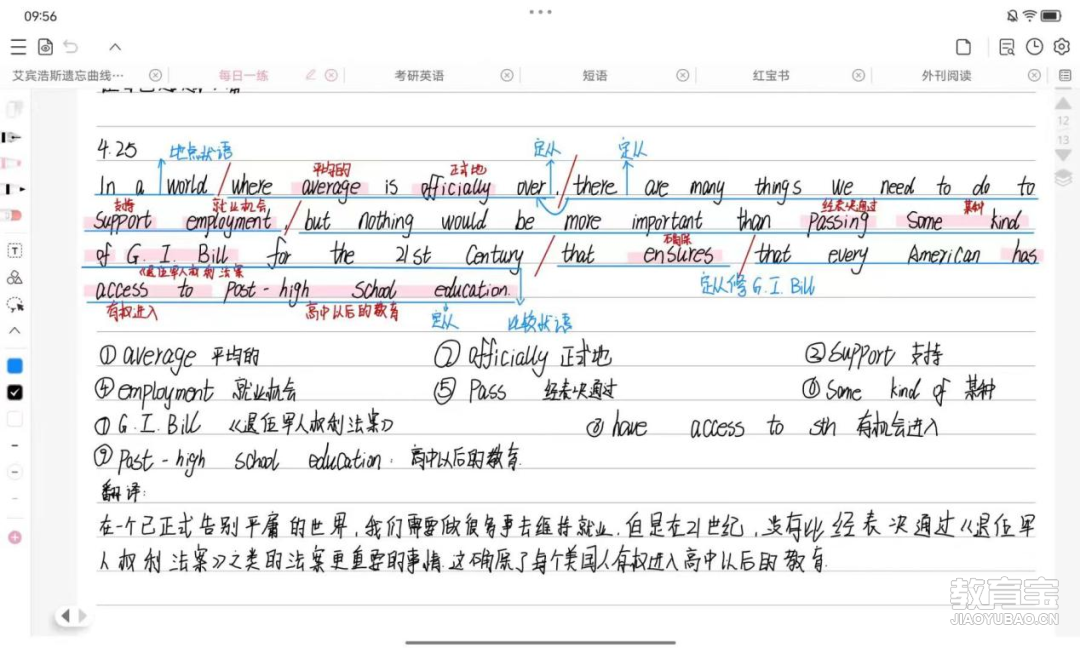 09:56
艾宾浩斯遗忘曲线… 每日一练 考研英语 短语 红宝书 外刊阅读
12
13
4.25 地点状语 定从 定从
平均的 正式地
In a world where average is officially over, there are many things we need to do to
支持 就业机会 经表决通过 某种
support employment, but nothing would be more important than passing some kind
确保
of G. I. Bill for the 21st Century that ensures that every American has
《退伍军人权利法案》 定从修G.I.Bill
access to post-high school education.
有权进入 高中以后的教育 定从 比较状语
① average 平均的 ② officially 正式地 ③ support 支持
④ employment 就业机会 ⑤ Pass 经表决通过 ⑥ Some kind of 某种
⑦ G.I.Bill 《退伍军人权利法案》 ⑧ have access to sth 有机会进入
⑨ Post-high school education. 高中以后的教育.
翻译:
在一个已正式告别平庸的世界,我们需要做很多事去维持就业.但是在21世纪,没有比经表决通过《退伍军
人权利法案》之类的法案更重要的事情.这确保了每个美国人有权进入高中以后的教育.
教育宝
JIAOYUBAO.CN